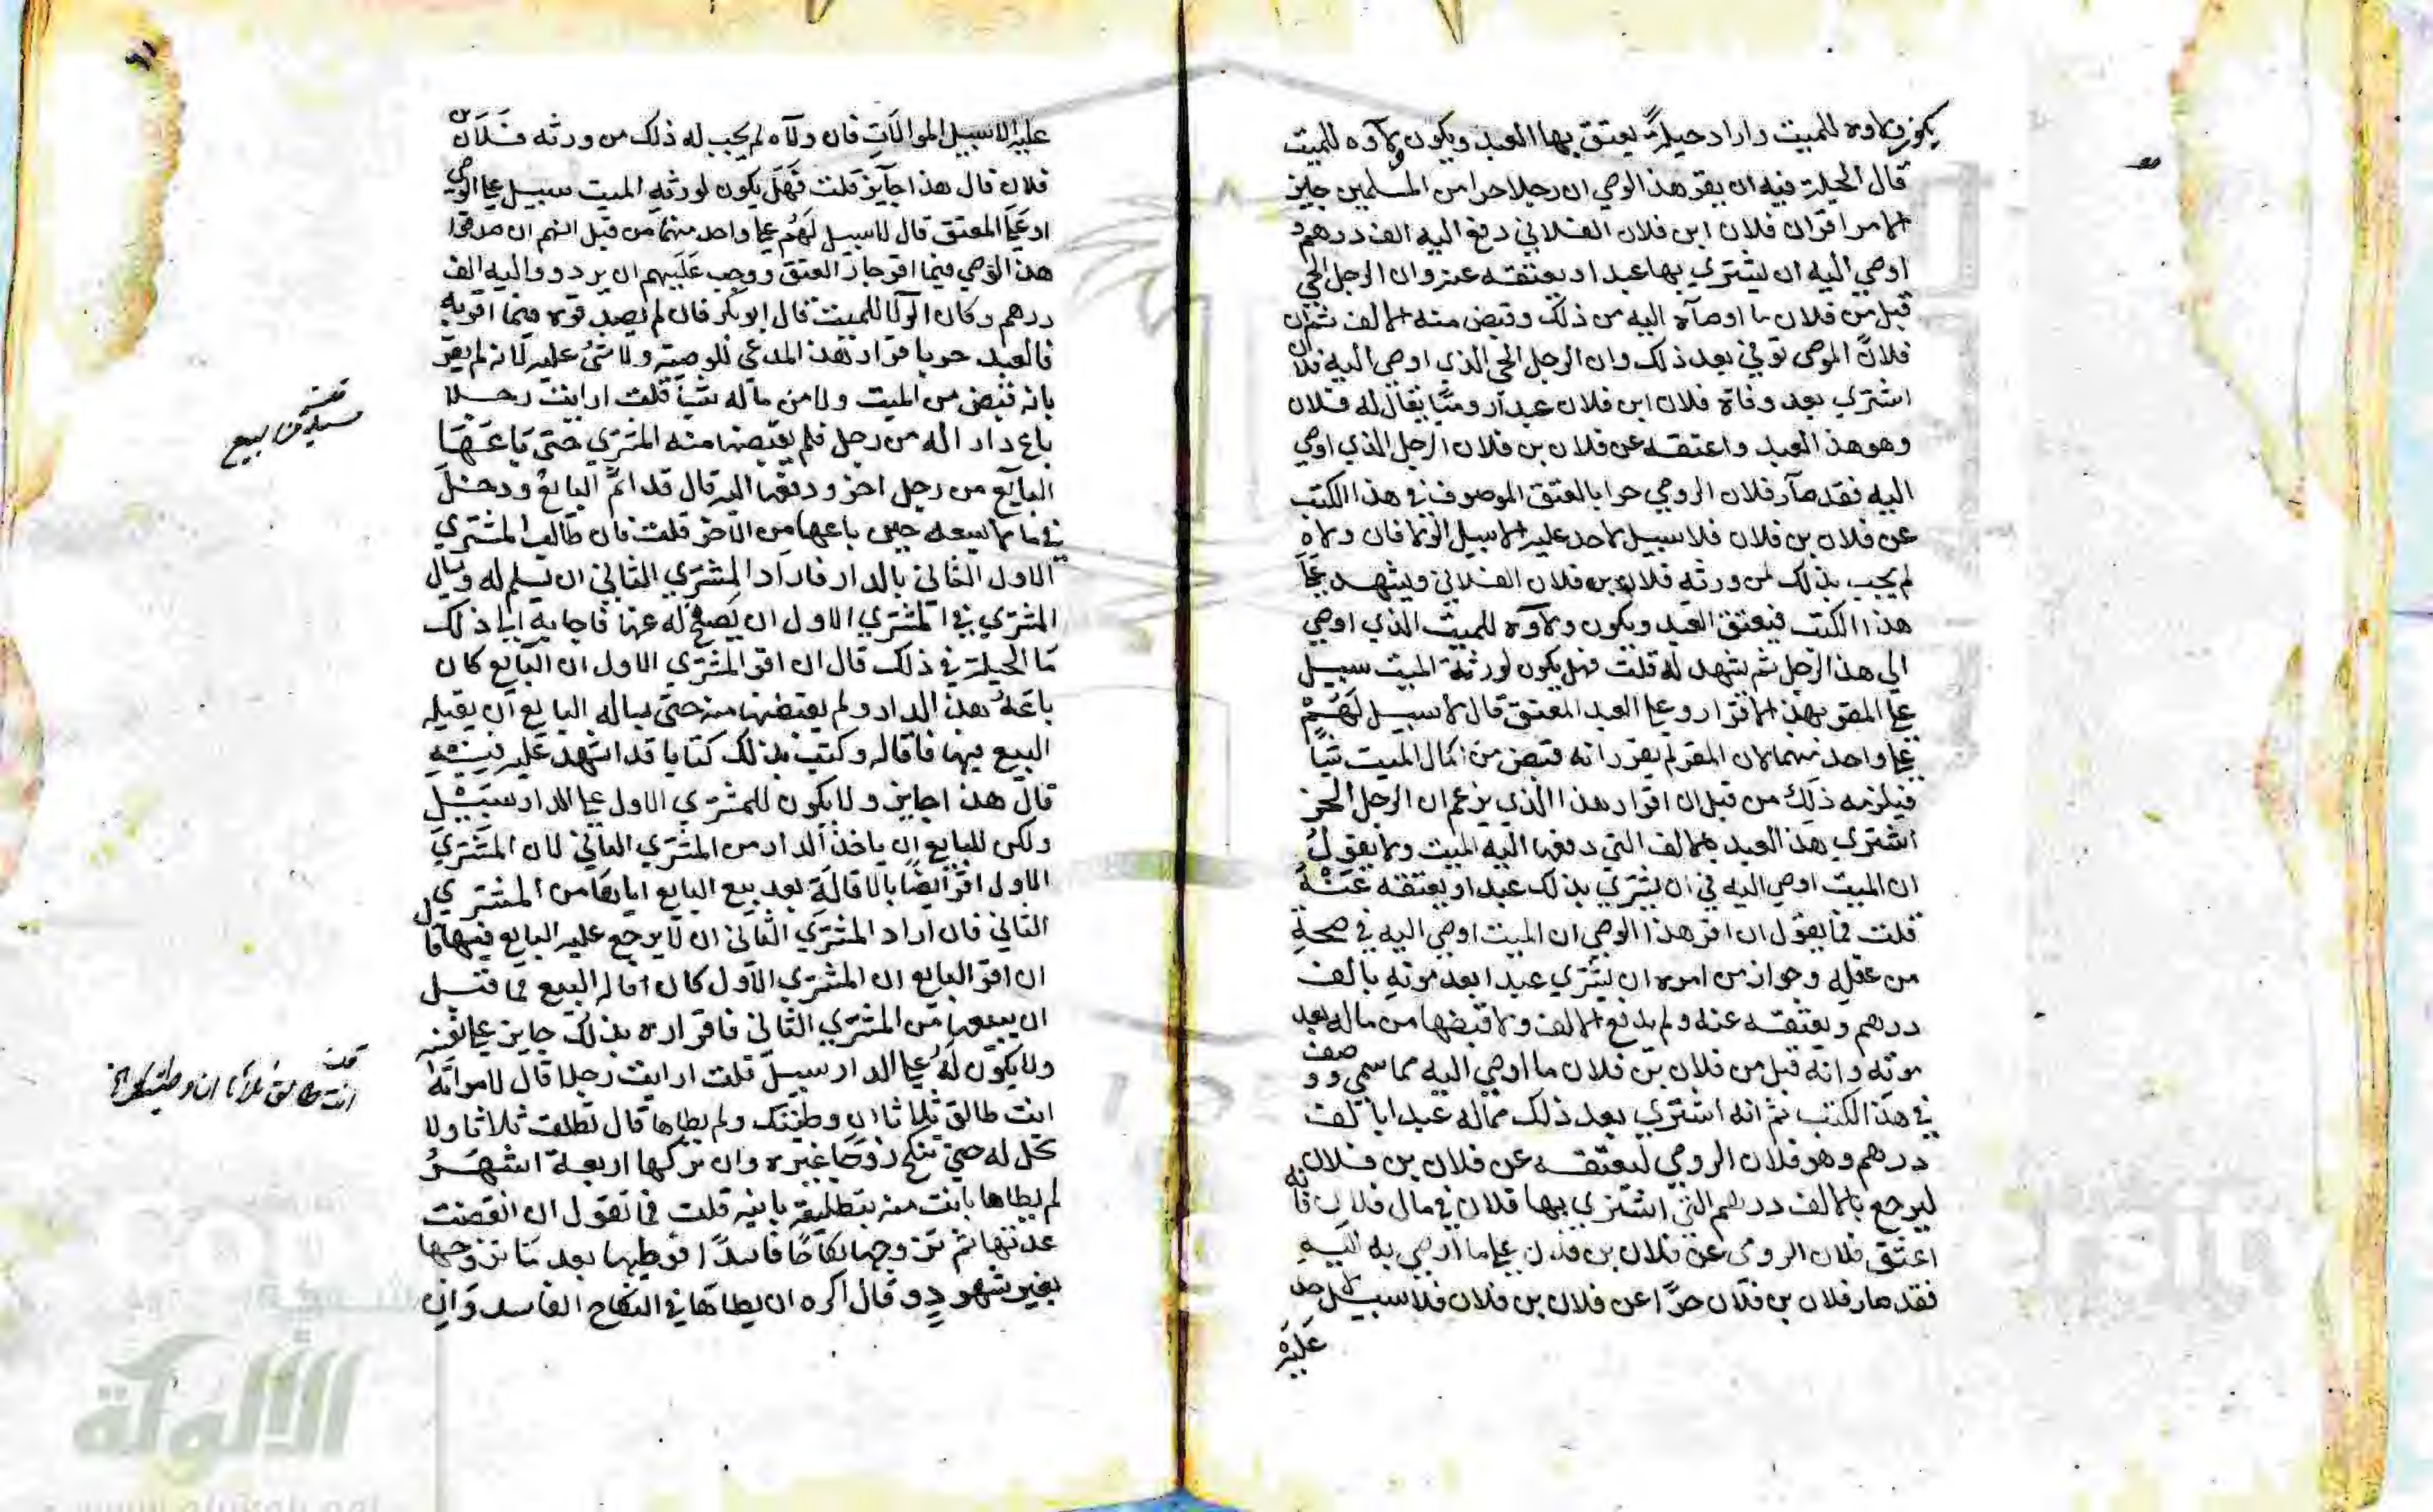 يكون ولاوه للميت واراد حيلة يعتق بها العبد ويكون ولاوه للميت
قال الحيلة فيه ان يقر هذا الوصي ان رجلا حرا من المسلمين جايز
الامر اقر ان فلان ابن فلان الفلاني دفع اليه الف درهم و
اوصي اليه ان يشتري بها عبدا ويعتقه عنه وان الرجل الحي
قبل من فلان ما اوصاه اليه من ذلك وقبض منه الالف ثم ان
فلانً الموصي توفي بعد ذلك وان الرجل الحي الذي اوصي اليه فلان
اشتري بعد وفاة فلان ابن فلان عبدا روميًا يقال له فلان
وهو هذا العبد واعتقه عن فلان بن فلان الرجل الذي اوصي
اليه فقد صار فلان الرومي حرا بالعتق الموصوف في هذا الكتب
عن فلان بن فلان فلا سبيل لاحد عليه الا سبيل الولا فان ولاه
لم يجب بذلك لمن ورثه فلان بن فلان الفلاني ويشهد عَلَي
هذا الكتب فيعتق العبد ويكون ولاوه للميت الذي اوصي
الي هذا الرجل ثم يشهد له قلت فهل يكون لورثة الميت سبيل
علي المقر بهذا الاقرار وعلي العبد المعتق قال لا سبيل لَهُمْ
علي واحد منهما لان المقر لم يقر انه قبض من مال الميت شيأ
فيلزمه ذلك من قبل ان اقرار هذا الذي يزعم ان الرجل الحر
اشتري هذا العبد بالالف التي دفعها اليه الميت ولا يقول
ان الميت اوصي اليه في ان يشتري بذلك عبدا ويعتقه عَنْهُ
قلت فما يقول ان اقر هذا الوصي ان الميت اوصي اليه في صحةِ
من عقله وجواز من امره ان يشتري عبدا بعد موته بالف
درهم ويعتقه عنه ولم يدفع الالف ولا قبضها من ماله بعد
موته وانه قبل من فلان بن فلان ما اوصي اليه مما سمي ووصف
في هذا الكتب ثم انه اشتري بعد ذلك مماله عبدا بالف
درهم وهو فلان الرومي ليعتقه عن فلان بن فلان
ليرجع بالالف درهم التي اشتري بها فلان في مال فلان فانه
اعتق فلان الرومي عن فلان بن فلان علي ما اوصي به اليهِ
فقد صار فلان بن فلان حرًا عن فلان بن فلان فلا سبيل لاحد
عَلَيْه
عليه الا سبيل الموالات فان ولاه لم يجب له ذلك من ورثه فلان بن
فلان قال هذا جايز قلت فهل يكون لورثه الميت سبيل علي الوصي
او علي المعتق قال لا سبيل لهُم علي واحد منهما من قبل انهم ان صدقوا
هذا الوصي فيما اقر جاز العتق ووجب عَلَيهم ان يردوا اليه الف
درهم وكان الولا للميت قال ابو بكر فان لم يصدقوه فيما اقر به
فالعبد حر باقرار هذا المدعي للوصية ولا شي عليه لانه لم يقر
بانه قبض من الميت ولا من ماله شيأ قلت ارايت رجلا
باع دارا له من رجل فلم يقبضها منه المشتري حتي باعَهَا
البايع من رجل اخر ودفعها اليه قال قد اثم البايع ودخل
في مالم يسعه حين باعها من الاخر قلت فان طالب المشتري
الاول الثاني بالدار فاراد المشتري الثاني ان تسلم له وسال
المشتري الاول ان يصفح له عنها فاجابه الي ذلك
ما الحيلة في ذلك قال ان اقر المشتري الاول ان البايع كان
باعَهُ هذا الدار ولم يقبضها منه حتي ساله البايع ان يقيله
البيع فيها فاقاله وكتب بذلك كتابا قد اشهد علي نفسه
قال هذا جايز ولا يكون للمشتري الاول علي الدار سبيل
ولكن للبايع ان ياخذ الدار من المشتري الثاني لان المشتري
الاول اقر ايضًا بالاقالة بعد بيع البايع اياها من المشتري
الثاني فان اراد المشتري الثاني ان لا يرجع عليه البايع فيها قال
ان اقر البايع ان المشتري الاول كان اقاله البيع فما قبل
ان يبيعها من المشتري الثاني فاقراره بذلك جايز علي نفسه
ولا يكون لهُ علي الدار سبيل قلت ارايت رجلا قال لامراته
انت طالق ثلاثا ان وطيتك ولم يطاها قال تطلق ثلاثا ولا
تحل له حتي تنكح زوجًا غيره وان تركها اربعة اشهُر
لم يطاها بانت منه بتطليقة باينه قلت فما تقول ان انقضت
عدتها ثم تزوجها نكاحًا فاسدًا فوطيها بعد ما تزوجها
بغير شهودٍ وقال اكره ان يطاها في النكاح الفاسد وان
مسيلة من البيع
انت طالق ثلاثا ان وطيتك
شبكة
الألوكة